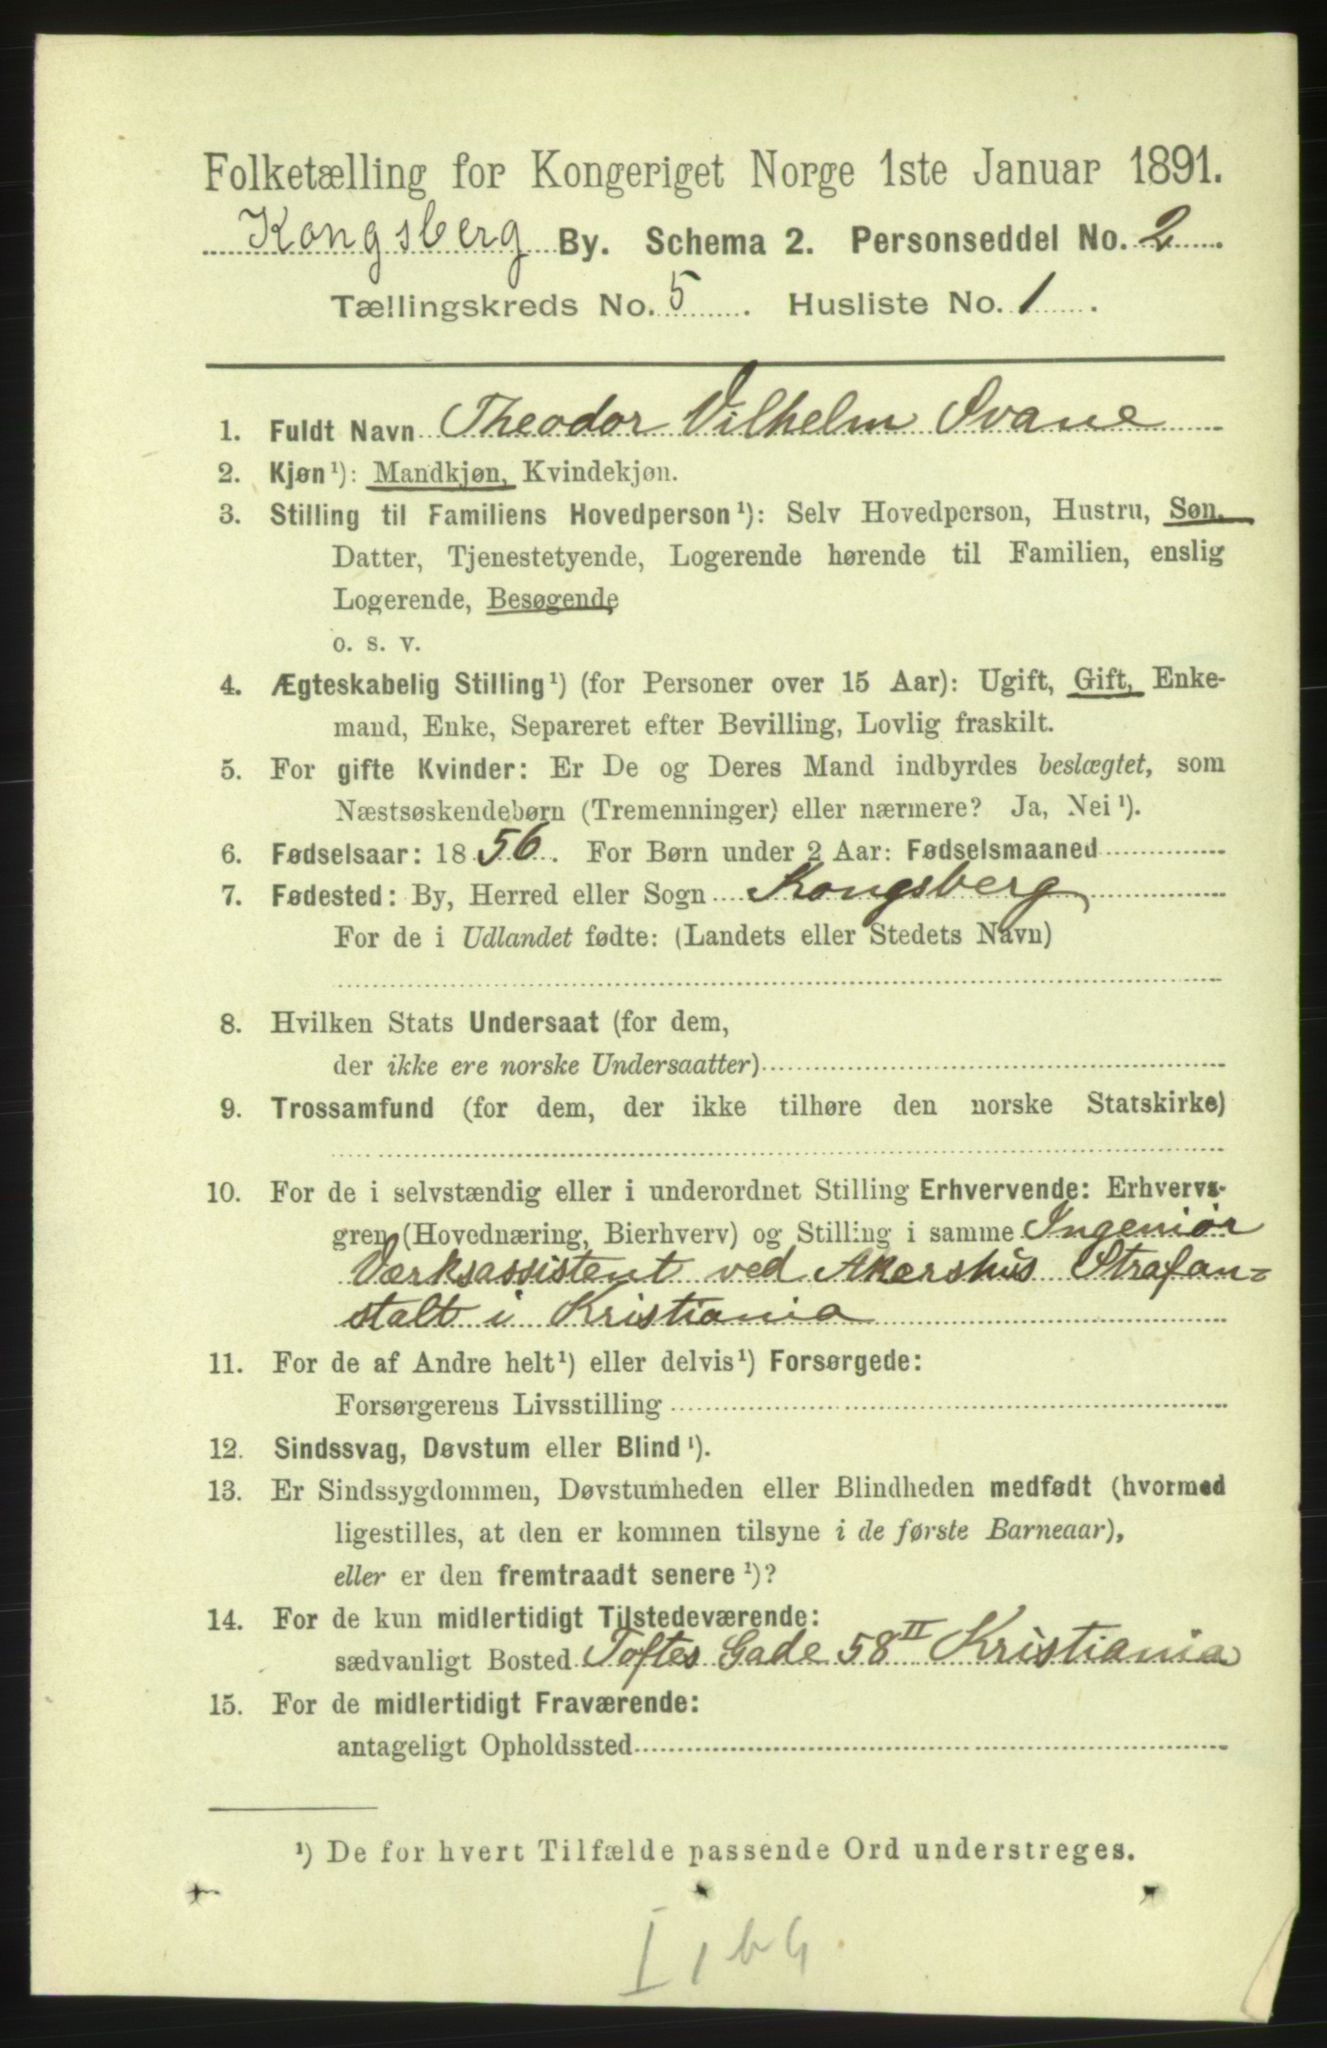 Folketælling for Kongeriget Norge 1ste Januar 1891.
Kongsberg By. Schema 2. Personseddel No. 2.
Tællingskreds No. 5. Husliste No. 1.
1. Fuldt Navn Theodor Vilhelm Svane
2. Kjøn¹): Mandkjøn, Kvindekjøn.
3. Stilling til Familiens Hovedperson¹): Selv Hovedperson, Hustru, Søn,
Datter, Tjenestetyende, Logerende hørende til Familien, enslig
Logerende, Besøgende
o. s. v.
4. Ægteskabelig Stilling¹) (for Personer over 15 Aar): Ugift, Gift, Enke-
mand, Enke, Separeret efter Bevilling, Lovlig fraskilt.
5. For gifte Kvinder: Er De og Deres Mand indbyrdes beslægtet, som
Næstsøskendebørn (Tremenninger) eller nærmere? Ja, Nei¹).
6. Fødselsaar: 1856. For Børn under 2 Aar: Fødselsmaaned
7. Fødested: By, Herred eller Sogn Kongsberg
For de i Udlandet fødte: (Landets eller Stedets Navn)
8. Hvilken Stats Undersaat (for dem,
der ikke ere norske Undersaatter)
9. Trossamfund (for dem, der ikke tilhøre den norske Statskirke)
10. For de i selvstændig eller i underordnet Stilling Erhvervende: Erhvervs-
gren (Hovednæring, Bierhverv) og Stilling i samme Ingeniør
Værksassistent ved Akershus Strafan=
stalt i Kristiania
11. For de af Andre helt¹) eller delvis¹) Forsørgede:
Forsørgerens Livsstilling
12. Sindssvag, Døvstum eller Blind¹).
13. Er Sindssygdommen, Døvstumheden eller Blindheden medfødt (hvormed
ligestilles, at den er kommen tilsyne i de første Barneaar),
eller er den fremtraadt senere¹)?
14. For de kun midlertidigt Tilstedeværende:
sædvanligt Bosted Toftes Gade 58 II Kristiania
15. For de midlertidigt Fraværende:
antageligt Opholdssted
¹) De for hvert Tilfælde passende Ord understreges.